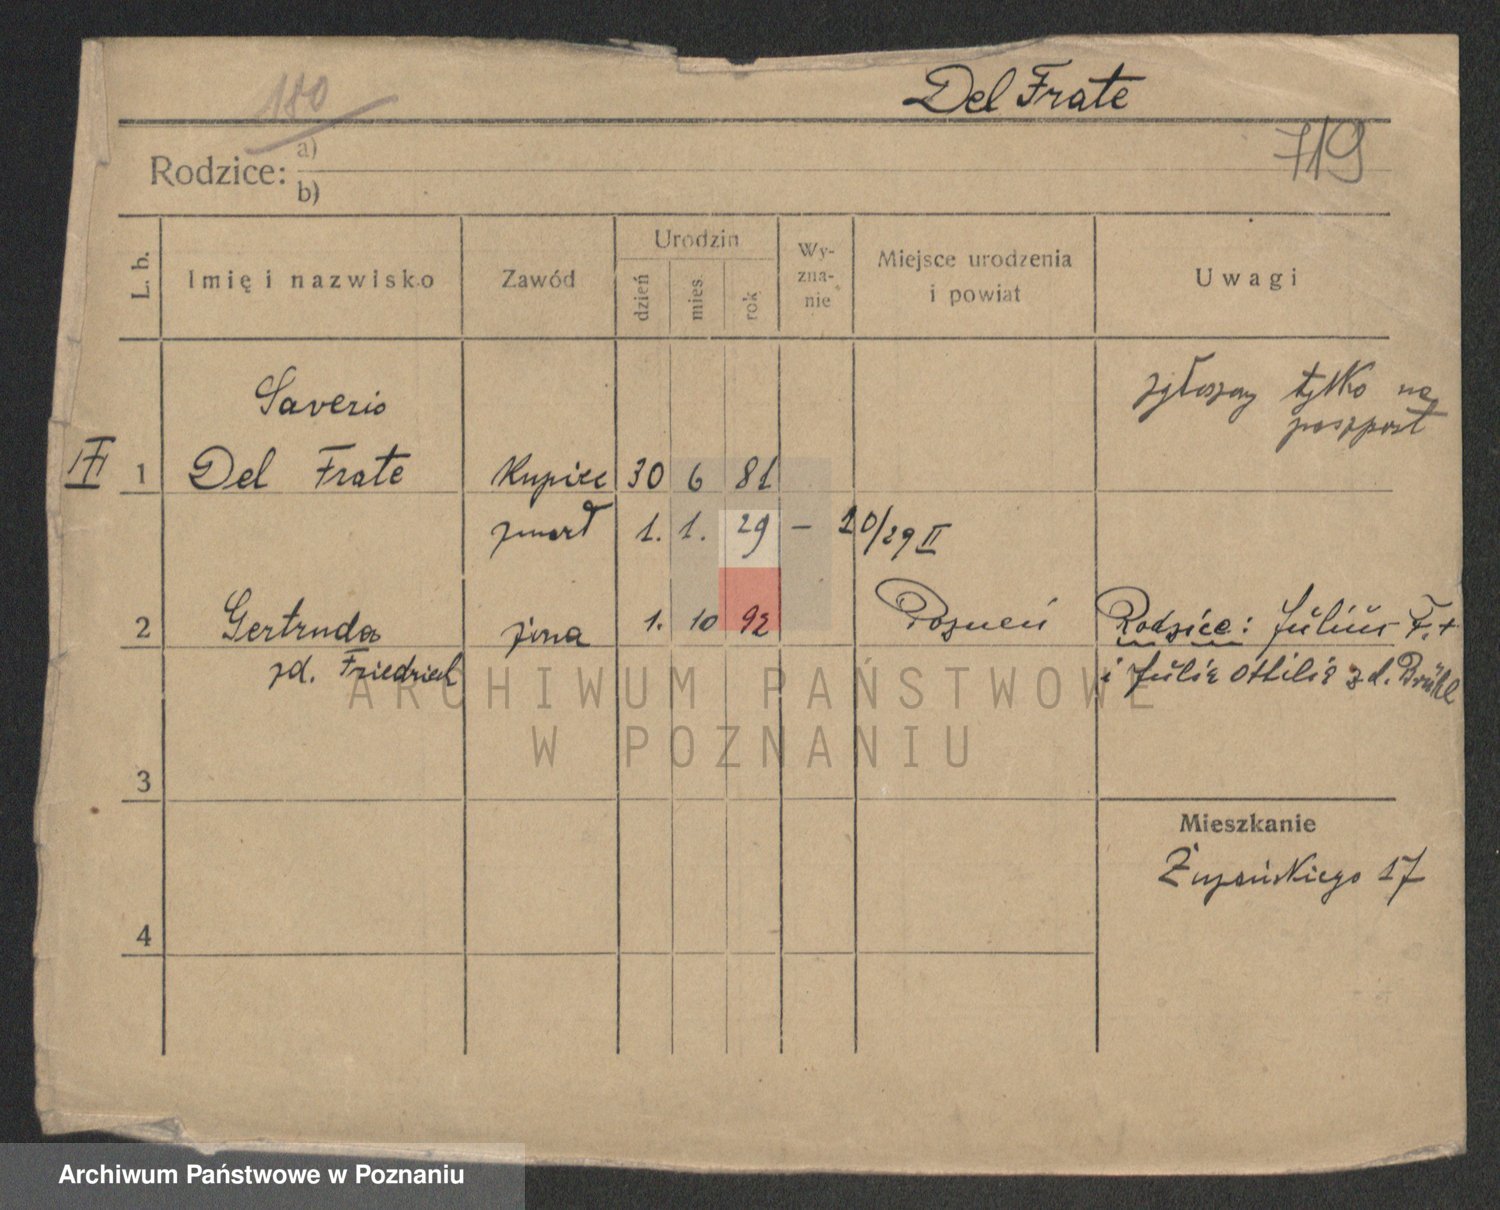 180
Del Frate
719
Rodzice: a)
b)
L. b.
Imię i nazwisko
Zawód
Urodzin
dzień
mies.
rok
Wy-
zna-
nie
Miejsce urodzenia
i powiat
Uwagi
Saverio
zgłoszony tylko na
paszport
III 1 Del Frate Kupiec 30 6 81
zmarł 1. 1. 29 — 10/29 II
2 Gertruda żona 1. 10 92 Poznań Rodzice: Julius F. +
zd. Friedrich i Julie Ottilie zd. Brühl
3
Mieszkanie
Żupańskiego 17
4
ARCHIWUM PAŃSTWOWE
W POZNANIU
Archiwum Państwowe w Poznaniu